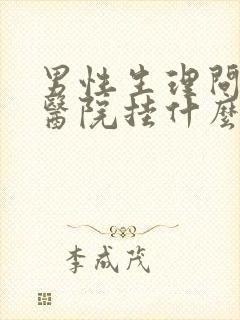 男性生理問
醫院挂什麼
李成茂